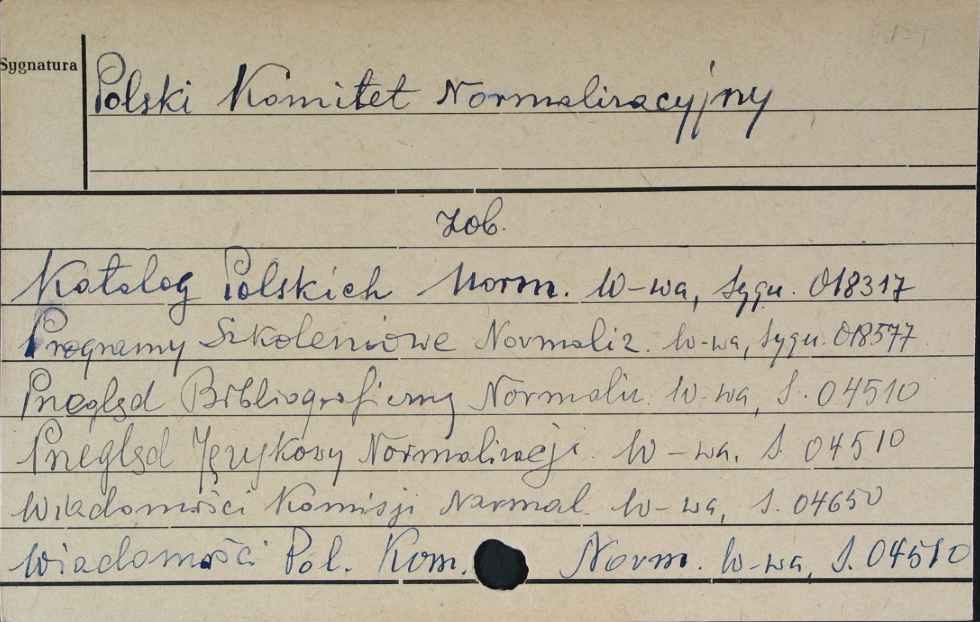 Sygnatura
Polski Komitet Normalizacyjny
Zob.
Katalog Polskich Norm. W-wa, sygn. 018317
Programy Szkoleniowe Normaliz. W-wa, sygn. 018577
Przegląd Bibliograficzny Normaliz. W-wa, S. 04510
Przegląd Językowy Normalizacji. W-wa, S. 04510
Wiadomości Komisji Normal. W-wa, S. 04650
Wiadomości Pol. Kom. Norm. W-wa, S. 04510